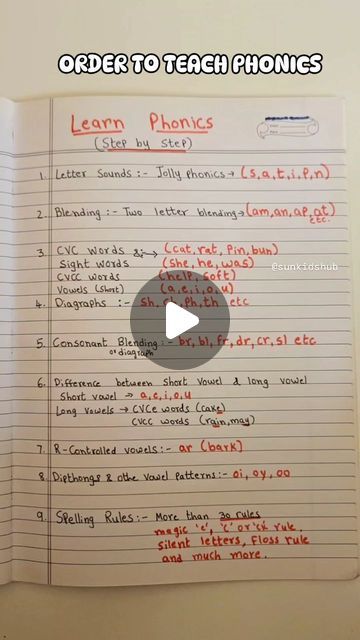 ORDER TO TEACH PHONICS
Learn Phonics
(Step by Step)
1. Letter Sounds :- Jolly phonics → (s, a, t, i, p, n)
2. Blending :- Two letter blending → (am, an, ap, at)
etc.
3. CVC words → (cat, rat, pin, bun)
Sight words (she, he, was)
@sunkidshub
CVCC words (help, soft)
Vowels (short) (a, e, i, o, u)
4. Diagraphs :- sh, ch, ph, th etc
5. Consonant Blending :- br, bl, fr, dr, cr, sl etc
or diagraph
6. Difference between short vowel & long vowel
Short vowel → a, e, i, o, u
Long vowels → CVCe words (cake)
CVCC words (rain, may)
7. R-Controlled vowels :- ar (bark)
8. Dipthongs & othe vowel patterns :- oi, oy, oo
9. Spelling Rules :- More than 30 rules
magic 'e', 'c' or 'ck' rule,
Silent letters, Floss rule
and much more.